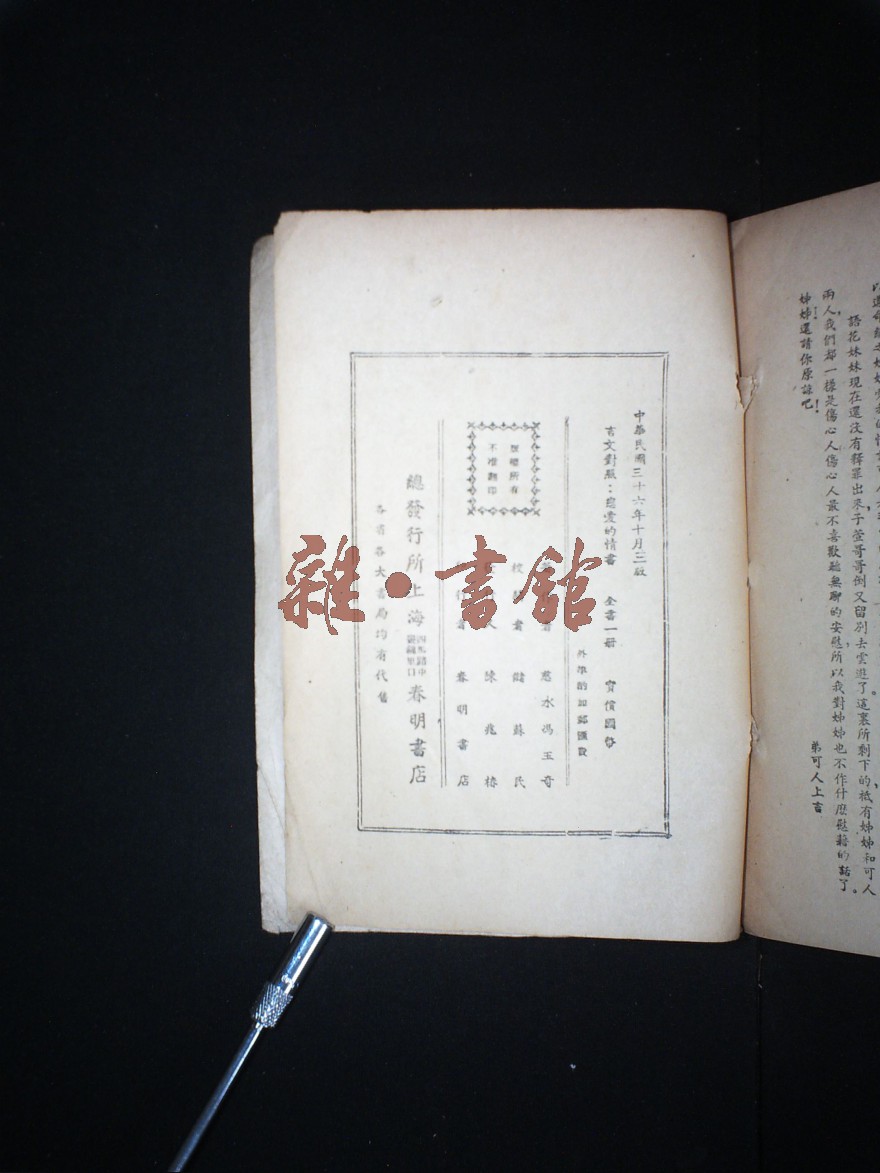 以
語花妹妹現在還沒有釋罪出來子萱哥哥倒又留別去雲遊了這裏所剩下的祗有姊姊和可人
兩人我們都一樣是傷心人傷心人最不喜歡聽無聊的安慰所以我對姊姊也不作什麼慰藉的話了。
姊姊還請你原諒吧！
弟可人上言
中華民國三十六年十月三版
言文對照：戀愛的情書 全書一冊 實價國幣
外埠酌加郵匯費
者 慈水馮玉奇
校 者 儲蘇民
人 陳兆椿
者 春明書店
版權所有
不准翻印
總發行所上海四馬路中 口春明書店
各省各大書局均有代售
雜·書館